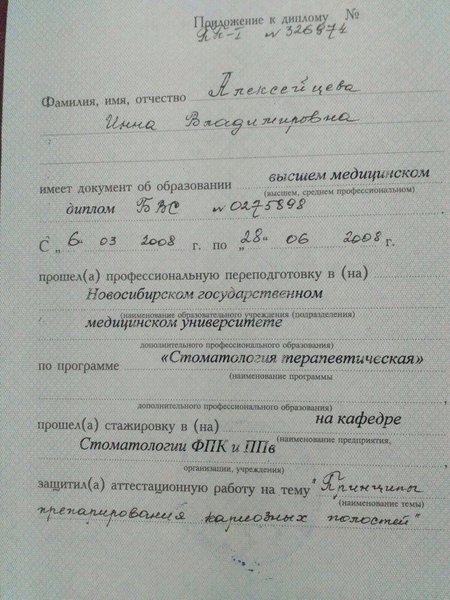 Приложение к диплому №
ПП-I № 326974
Фамилия, имя, отчество Алексейцева
Инна Владимировна
имеет документ об образовании высшем медицинском
(высшем, среднем профессиональном)
диплом БВС № 0275898
С „6“ 03 2008 г. по „28“ 06 2008 г.
прошел(а) профессиональную переподготовку в (на)
Новосибирском государственном
(наименование образовательного учреждения (подразделения)
медицинском университете
дополнительного профессионального образования)
по программе «Стоматология терапевтическая»
(наименование программы
дополнительного профессионального образования)
прошел(а) стажировку в (на) на кафедре
(наименование предприятия,
Стоматологии ФПК и ППв
организации, учреждения)
защитил(а) аттестационную работу на тему "Принципы
(наименование темы)
препарирования кариозных полостей"